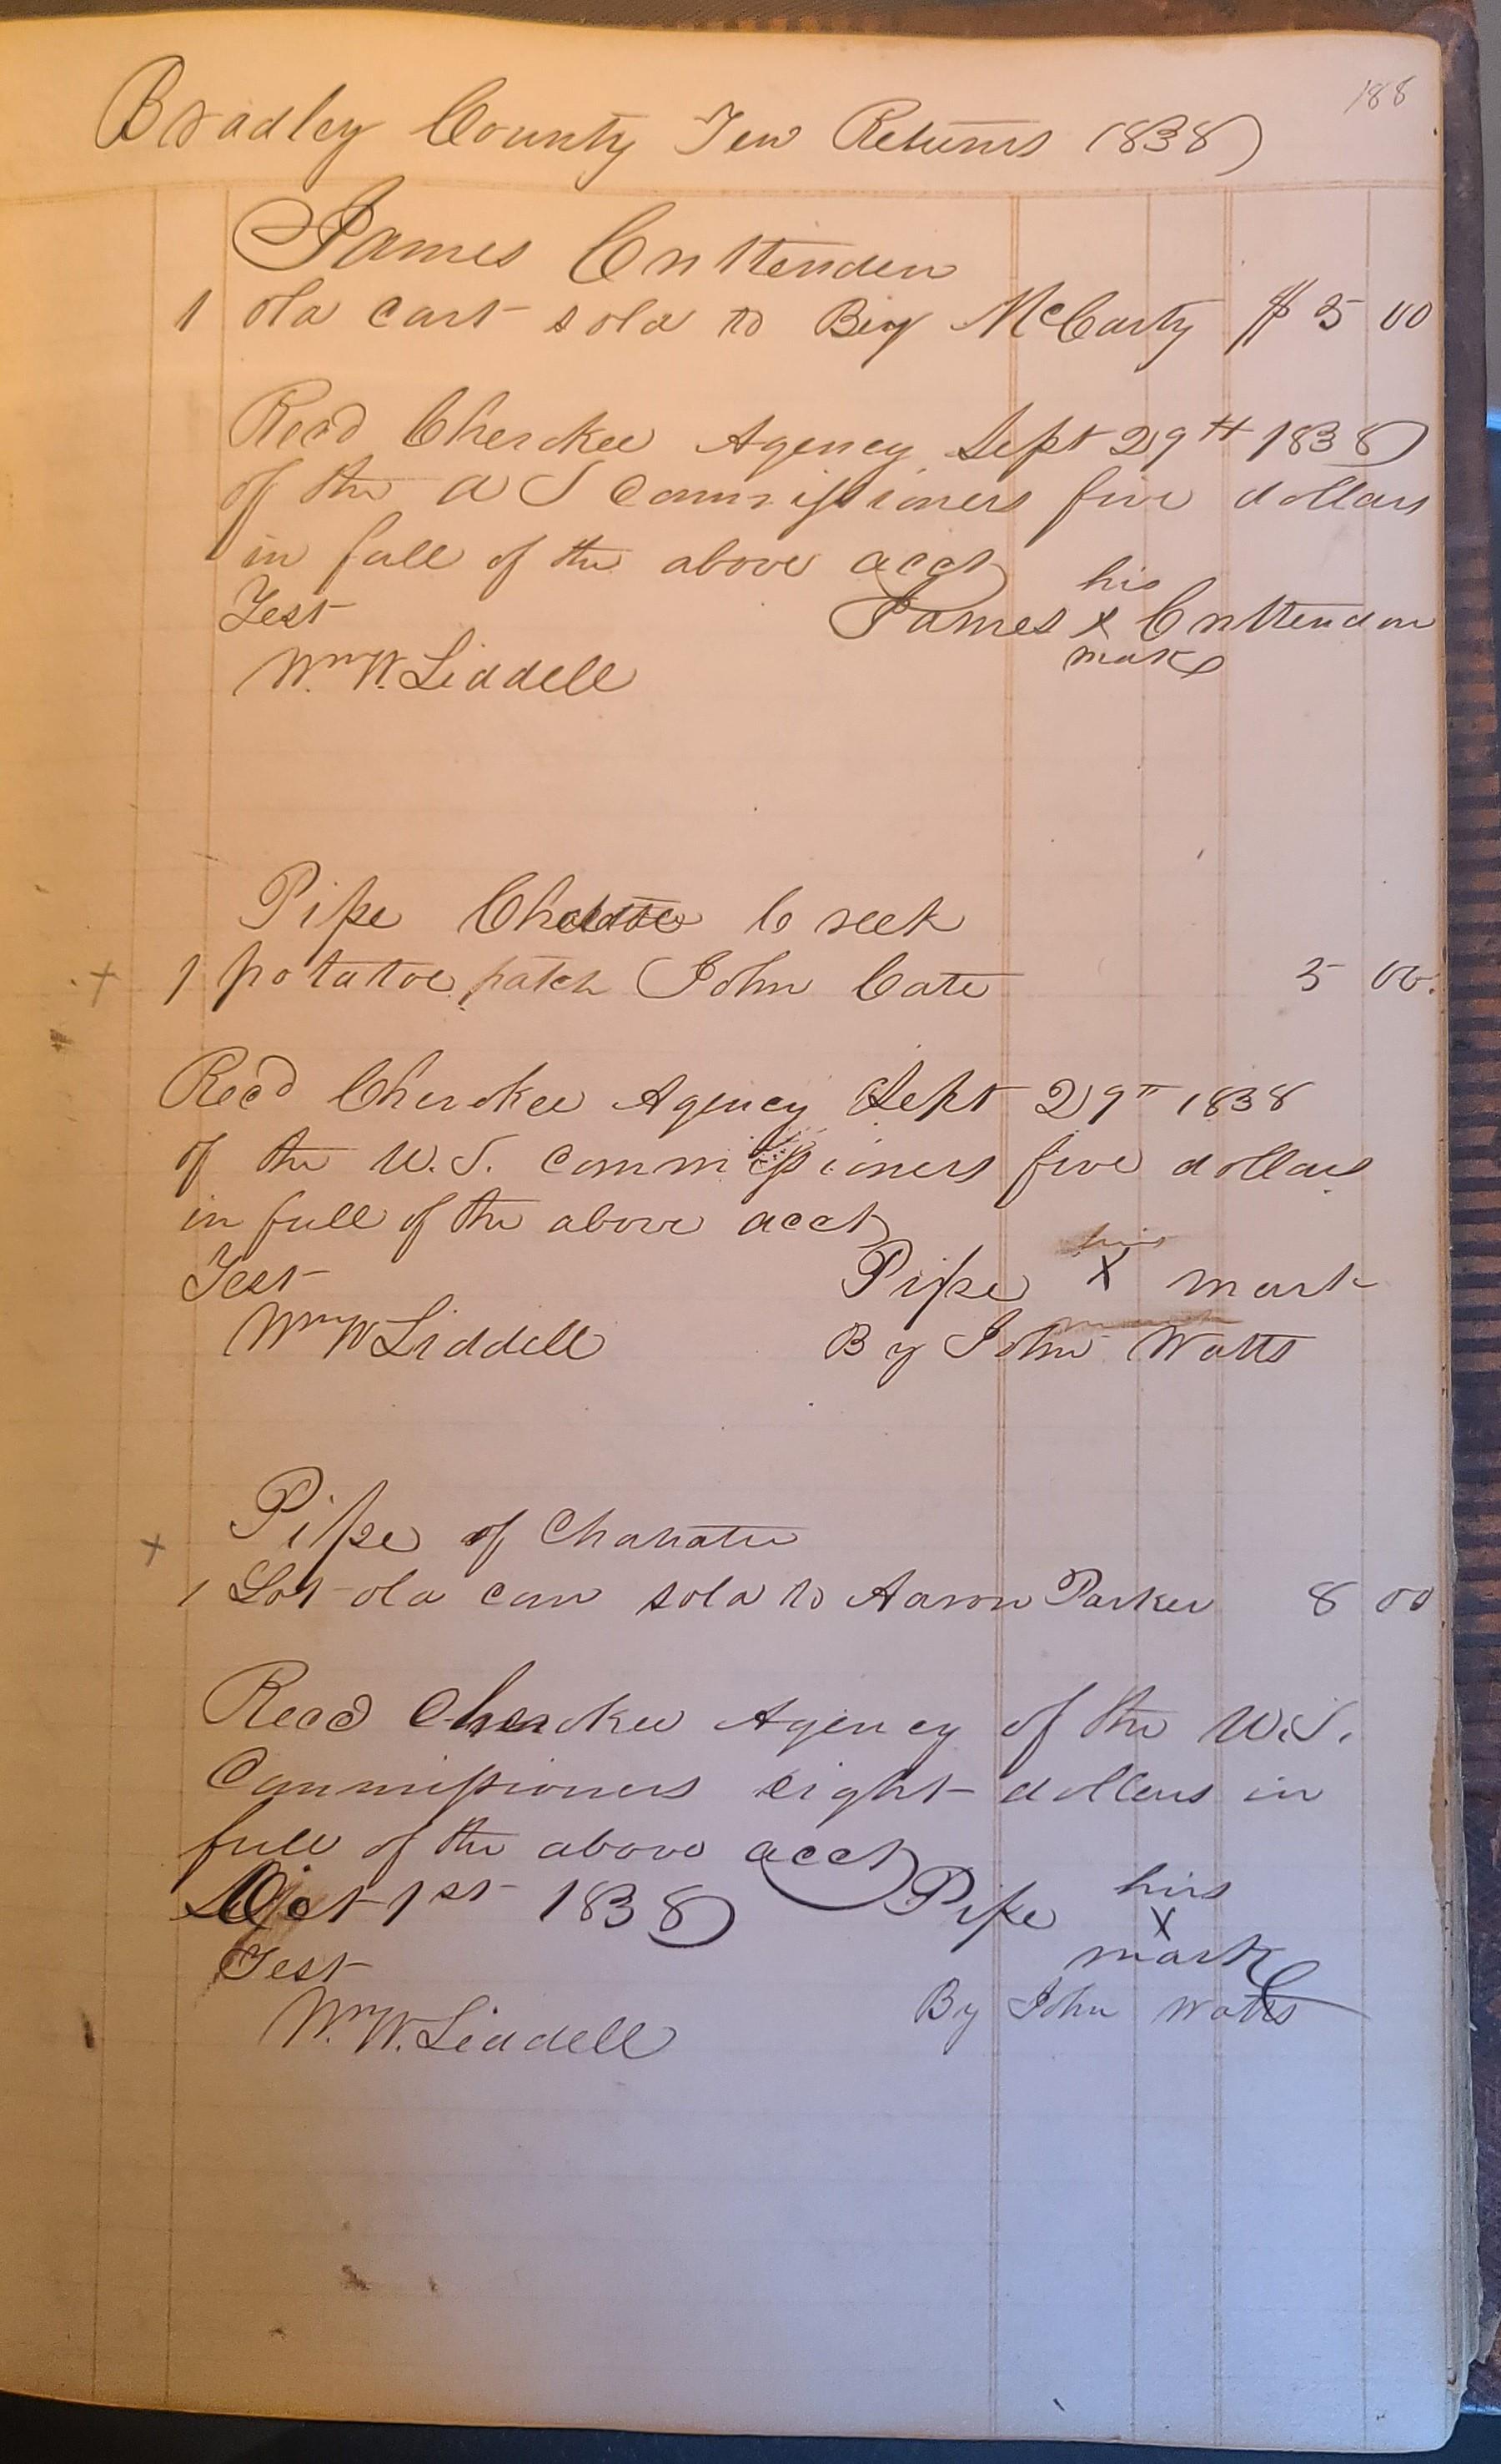 188
Bradley County Ten Returns 1838
James Crittenden
1 old cart sold to Big McCarty $5 00
Recd Cherokee Agency Sept 29th 1838
of the U S Commissioners five dollars
in full of the above acct
Test James his x mark Crittenden
Wm W. Liddell
Pipe Creek
+ 1 potatoe patch John Cate 5 00.
Recd Cherokee Agency Sept 29th 1838
of the U.S. Commissioners five dollars
in full of the above acct
Test Pipe his X mark
Wm W Liddell By John Watts
Pipe of Chatata
+ 1 Lot old corn sold to Aaron Parker 8 00
Recd Cherokee Agency of the U.S.
Commissioners eight dollars in
full of the above acct
Oct 1st 1838 Pipe his X mark
Test By John Watts
Wm W. Liddell